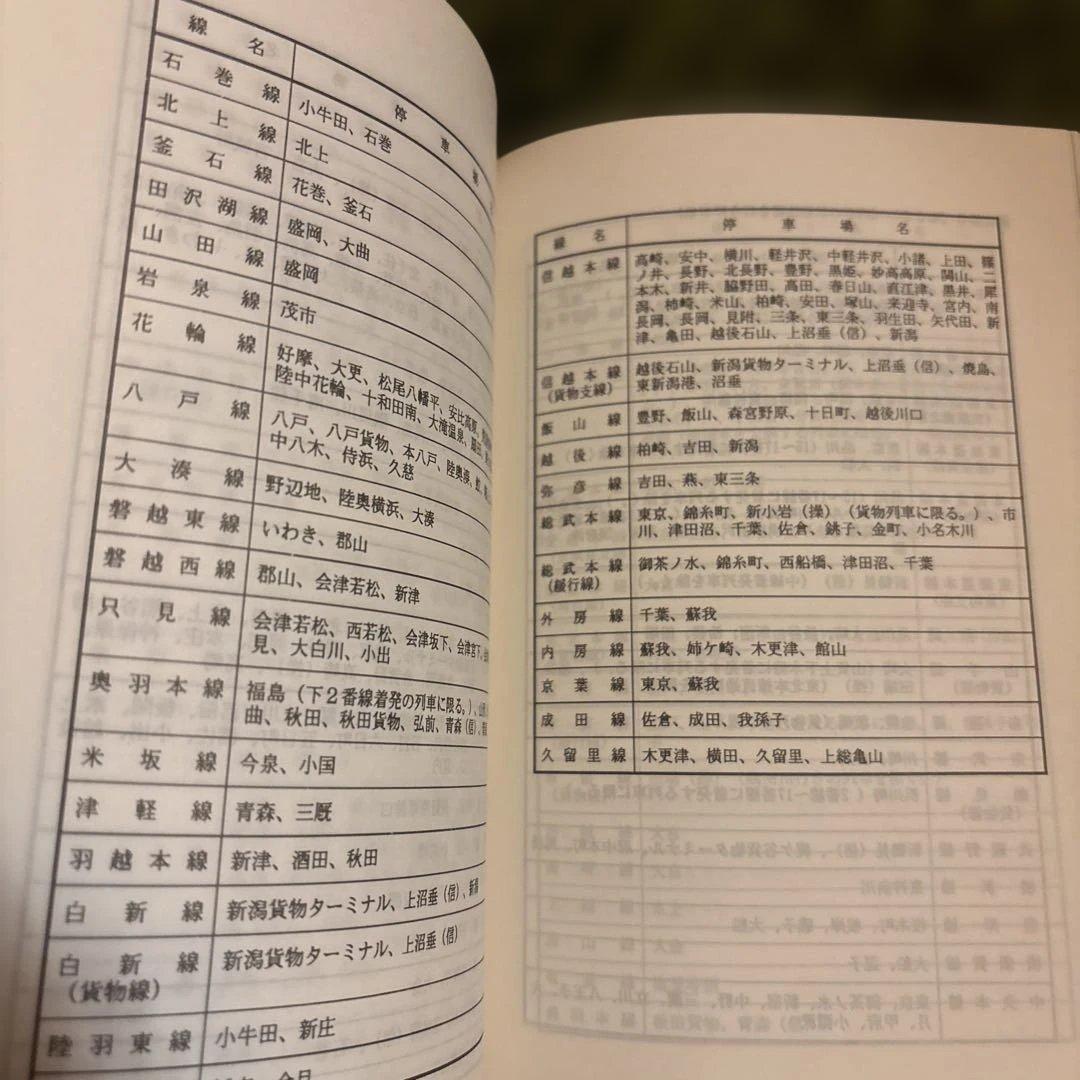 線名 停車
石巻線 小牛田、石巻
北上線 北上
釜石線 花巻、釜石
田沢湖線 盛岡、大曲
山田線 盛岡
岩泉線 茂市
花輪線 好摩、大更、松尾八幡平、安比高原、
陸中花輪、十和田南、大滝温泉、扇田、
八戸線 八戸、八戸貨物、本八戸、陸奥湊、
中八木、侍浜、久慈
大湊線 野辺地、陸奥横浜、大湊
磐越東線 いわき、郡山
磐越西線 郡山、会津若松、新津
只見線 会津若松、西若松、会津坂下、会津宮下、
見、大白川、小出
奥羽本線 福島(下2番線着発の列車に限る。)、
曲、秋田、秋田貨物、弘前、青森(信)、
米坂線 今泉、小国
津軽線 青森、三厩
羽越本線 新津、酒田、秋田
白新線 新潟貨物ターミナル、上沼垂(信)、新潟
白新線 新潟貨物ターミナル、上沼垂(信)
(貨物線)
陸羽東線 小牛田、新庄
線名 停車場名
信越本線 高崎、安中、横川、軽井沢、中軽井沢、小諸、上田、篠
ノ井、長野、北長野、豊野、黒姫、妙高高原、関山、二
本木、新井、脇野田、高田、春日山、直江津、黒井、犀
潟、柿崎、米山、柏崎、安田、塚山、来迎寺、宮内、南
長岡、長岡、見附、三条、東三条、羽生田、矢代田、新
津、亀田、越後石山、上沼垂(信)、新潟
信越本線 越後石山、新潟貨物ターミナル、上沼垂(信)、焼島、
(貨物支線) 東新潟港、沼垂
飯山線 豊野、飯山、森宮野原、十日町、越後川口
越後線 柏崎、吉田、新潟
弥彦線 吉田、燕、東三条
総武本線 東京、錦糸町、新小岩(操)(貨物列車に限る。)、市
川、津田沼、千葉、佐倉、銚子、金町、小名木川
総武本線 御茶ノ水、錦糸町、西船橋、津田沼、千葉
(緩行線)
外房線 千葉、蘇我
内房線 蘇我、姉ケ崎、木更津、館山
京葉線 東京、蘇我
成田線 佐倉、成田、我孫子
久留里線 木更津、横田、久留里、上総亀山